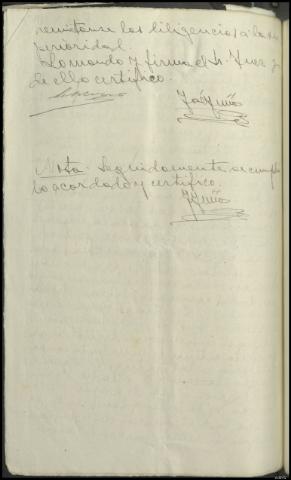 remitanse las diligencias a la su
perioridad.
Lo mando y firma el Sr. Juez y
de ello certifico.
Nota. Seguidamente se cumple
lo acordado y certifico.